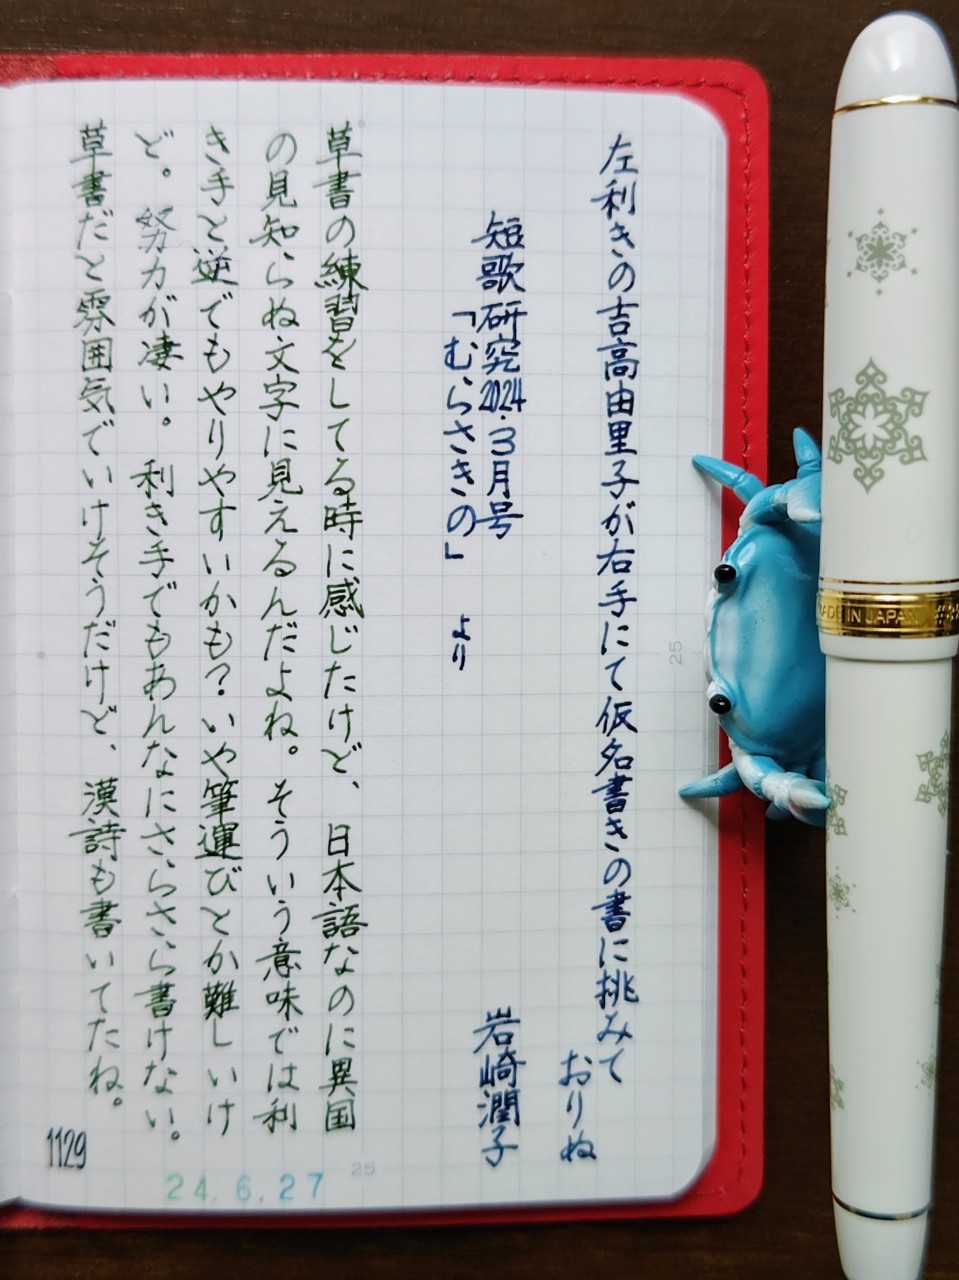 左利きの吉高由里子が右手にて仮名書きの書に挑みて
おりぬ
岩崎潤子
短歌研究2024.3月号
「むらさきの」より
草書の練習をしてる時に感じたけど、日本語なのに異国
の見知らぬ文字に見えるんだよね。そういう意味では利
き手と逆でもやりやすいかも?いや筆運びとか難しいけ
ど。努力が凄い。利き手でもあんなにさらさら書けない。
草書だと雰囲気でいけそうだけど、漢詩も書いてたね。
1129
24.6.27
25
25
MADE IN JAPAN